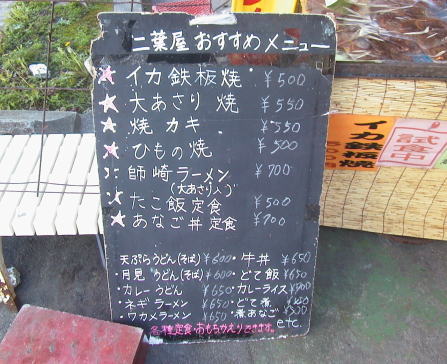 二葉屋 おすすめメニュー
★イカ鉄板焼 ¥500
★大あさり 焼 ¥550
★焼 カキ ¥550
★ひもの焼 ¥500
師崎ラーメン ¥700
(大あさり入り)
★たこ飯定食 ¥500
★あなご丼 定食 ¥700
天ぷらうどん(そば) ¥600・牛丼 ¥650
・月見 うどん(そば) ¥600・どて飯 ¥650
・カレーうどん ¥650・カレーライス
・ネギラーメン ¥650・どて煮
・ワカメラーメン ¥650・煮あなご
各種定食・おもちかえりできます。 etc.
イカ鉄板焼
試食中